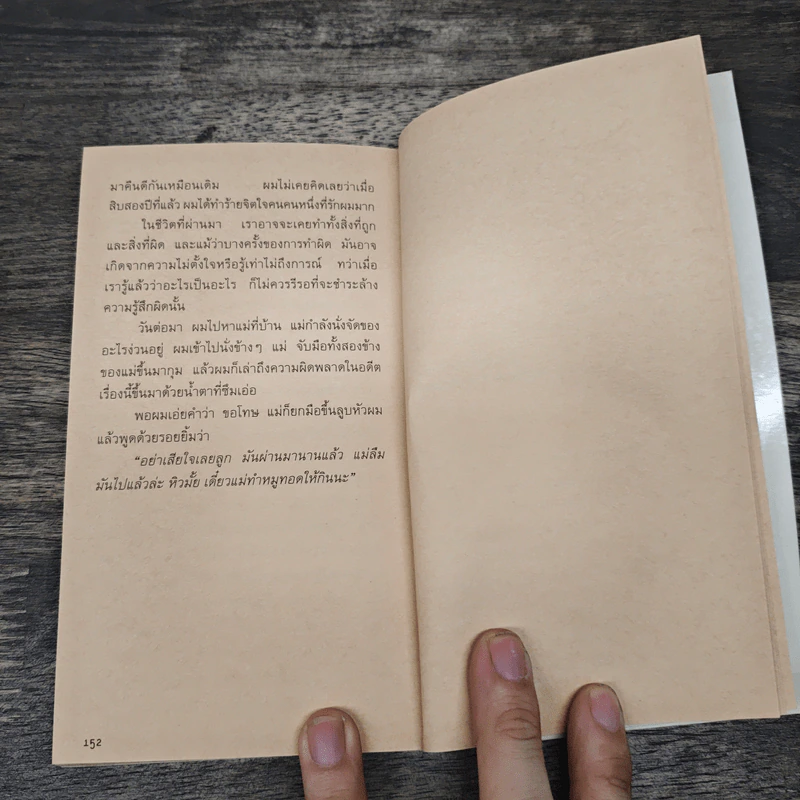 มาคืนดีกันเหมือนเดิม ผมไม่เคยคิดเลยว่าเมื่อ
สิบสองปีที่แล้ว ผมได้ทำร้ายจิตใจคนคนหนึ่งที่รักผมมาก
ในชีวิตที่ผ่านมา เราอาจจะเคยทำทั้งสิ่งที่ถูก
และสิ่งที่ผิด และแม้ว่าบางครั้งของการทำผิด มันอาจ
เกิดจากความไม่ตั้งใจหรือรู้เท่าไม่ถึงการณ์ ทว่าเมื่อ
เรารู้แล้วว่าอะไรเป็นอะไร ก็ไม่ควรรีรอที่จะชำระล้าง
ความรู้สึกผิดนั้น
วันต่อมา ผมไปหาแม่ที่บ้าน แม่กำลังนั่งจัดของ
อะไรง่วนอยู่ ผมเข้าไปนั่งข้างๆ แม่ จับมือทั้งสองข้าง
ของแม่ขึ้นมากุม แล้วผมก็เล่าถึงความผิดพลาดในอดีต
เรื่องนี้ขึ้นมาด้วยน้ำตาที่ซึมเอ่อ
พอผมเอ่ยคำว่า ขอโทษ แม่ก็ยกมือขึ้นลูบหัวผม
แล้วพูดด้วยรอยยิ้มว่า
“อย่าเสียใจเลยลูก มันผ่านมานานแล้ว แม่ลืม
มันไปแล้วล่ะ หิวมั้ย เดี๋ยวแม่ทำหมูทอดให้กินนะ”
152